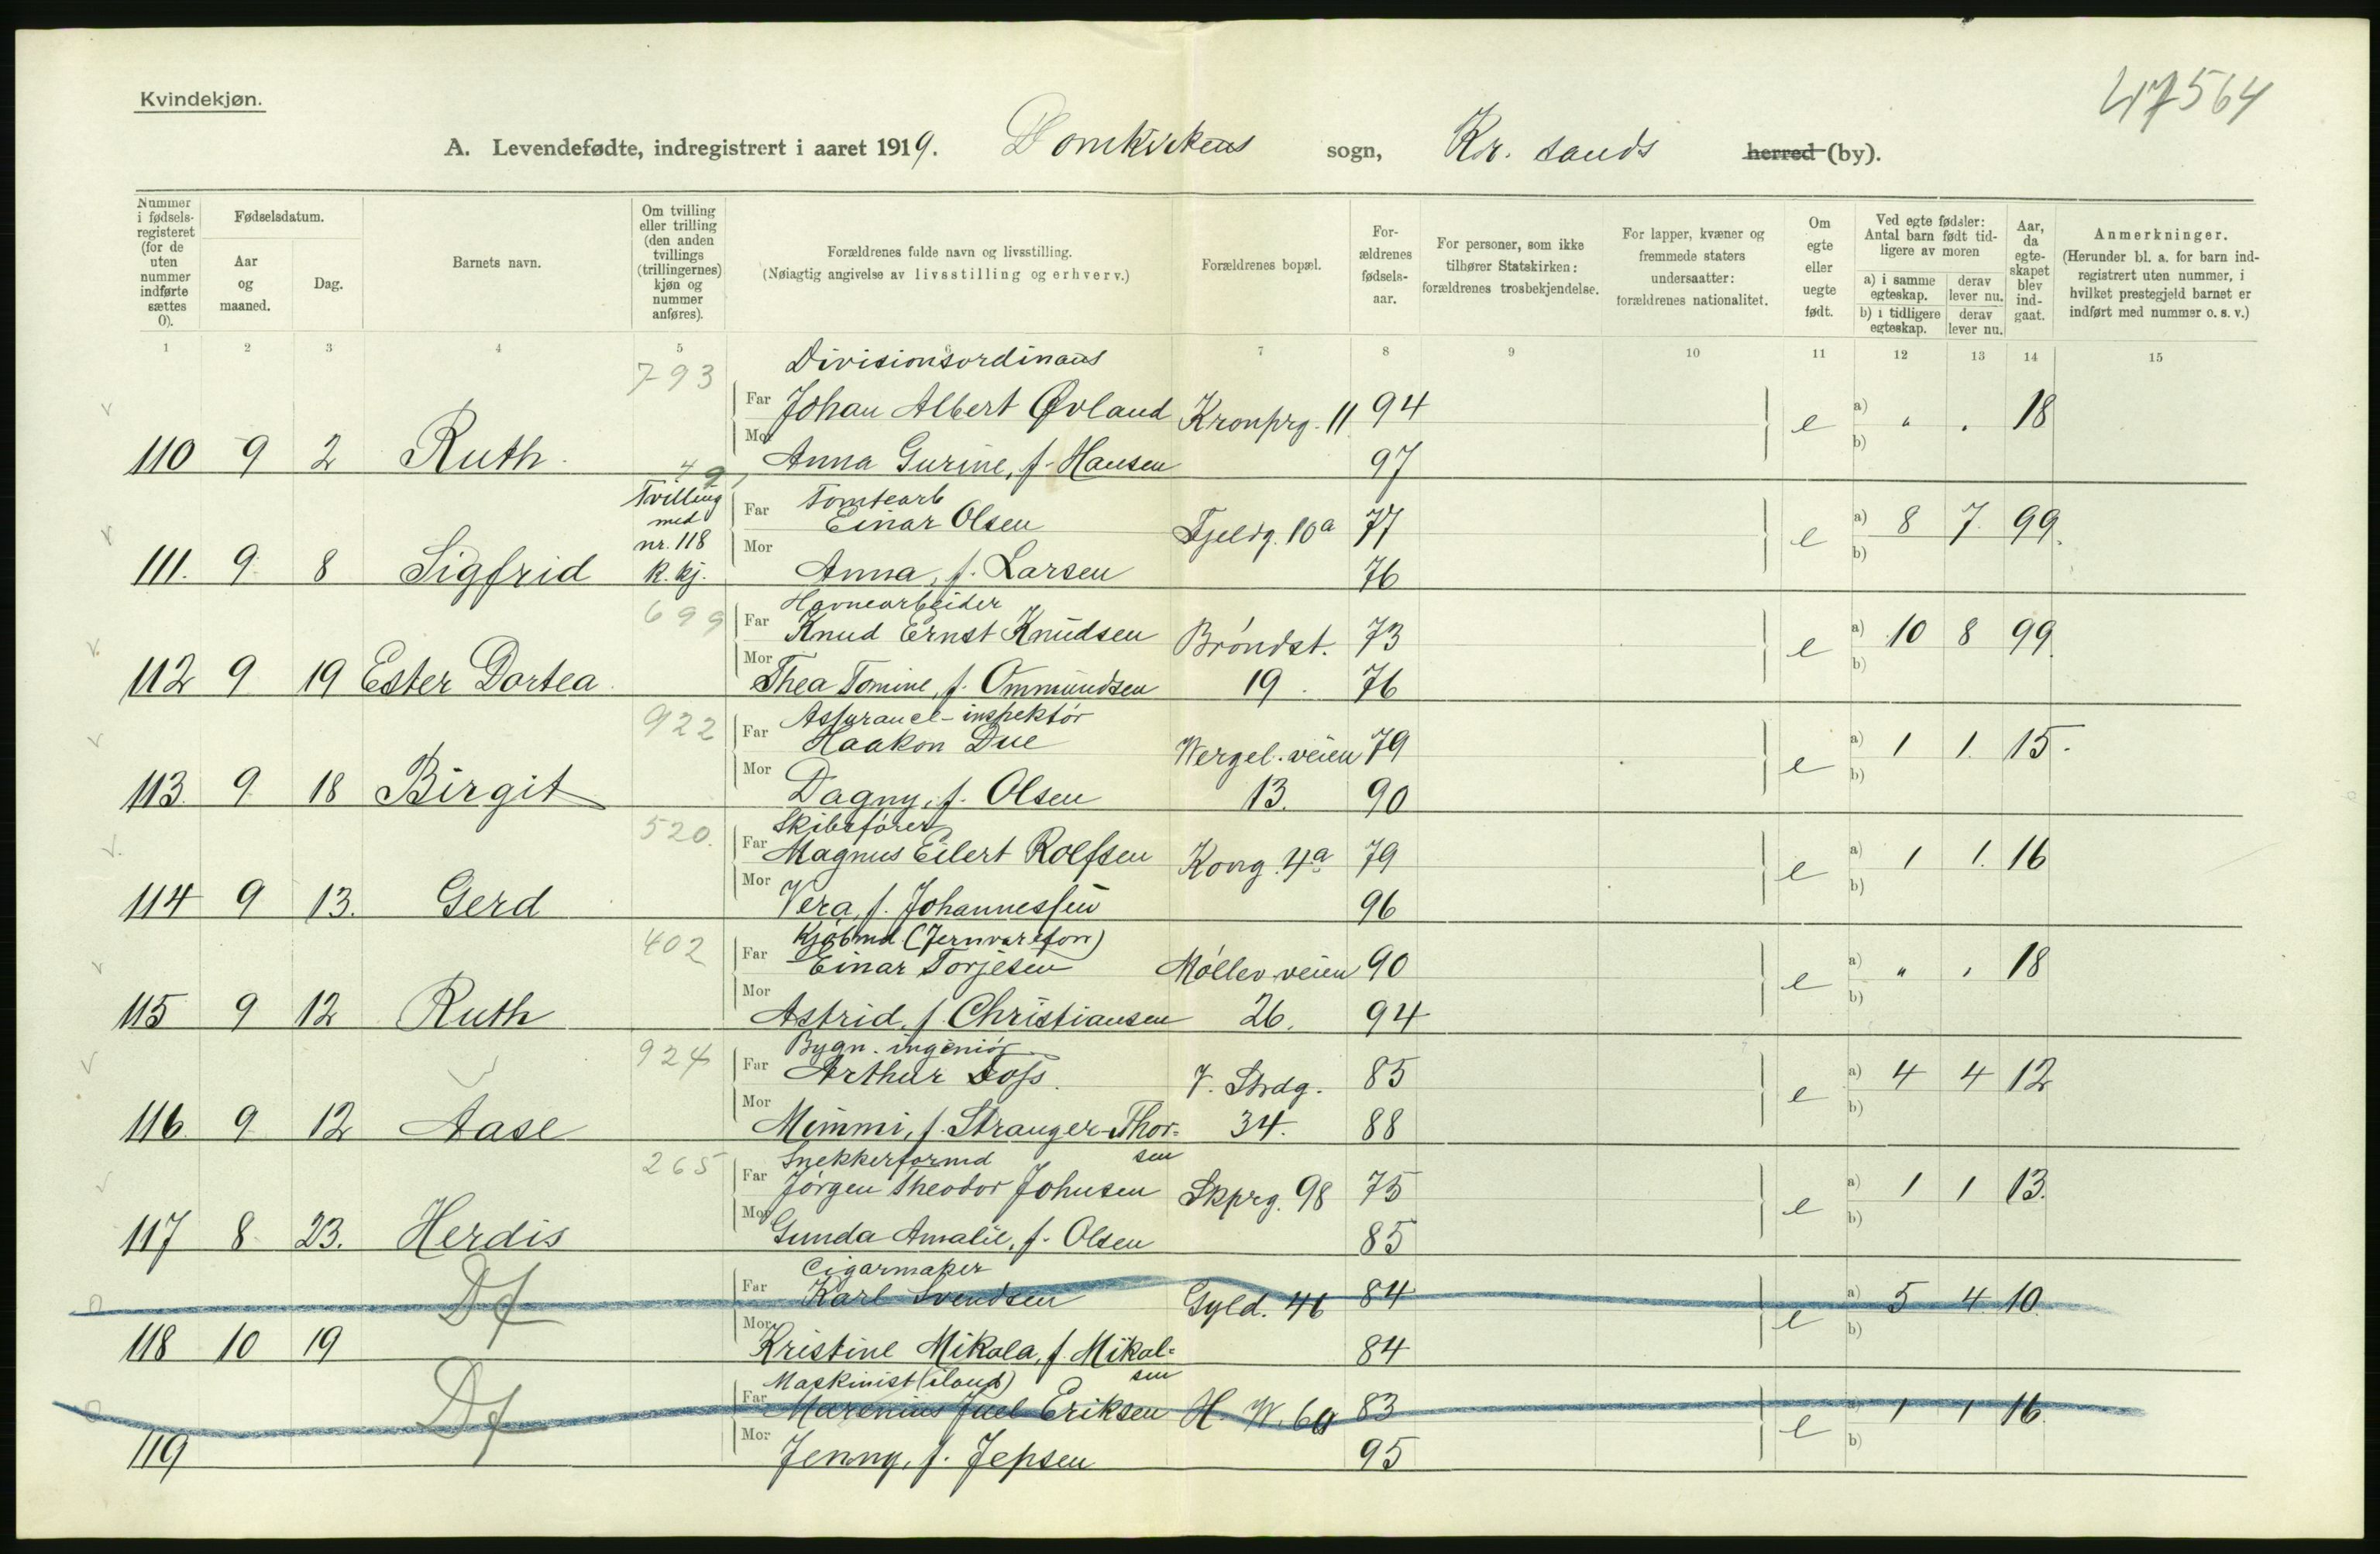 Kvindekjøn.
47564
A. Levendefødte, indregistrert i aaret 1919. Domkirkens sogn, Kr. sands herred (by).
Nummer i fødsels-registeret (for de uten nummer indførte sættes 0).
Fødselsdatum.
Aar og maaned.
Dag.
Barnets navn.
Om tvilling eller trilling (den anden tvillings (trillingernes) kjøn og nummer anføres).
Forældrenes fulde navn og livsstilling.
(Nøiagtig angivelse av livsstilling og erhverv.)
Forældrenes bopæl.
For-ældrenes fødsels-aar.
For personer, som ikke tilhører Statskirken: forældrenes trosbekjendelse.
For lapper, kvæner og fremmede staters undersaatter: forældrenes nationalitet.
Om egte eller uegte født.
Ved egte fødsler: Antal barn født tid-ligere av moren
a) i samme egteskap. derav lever nu.
b) i tidligere egteskap. derav lever nu.
Aar, da egte-skapet blev ind-gaat.
Anmerkninger.
(Herunder bl. a. for barn ind-registrert uten nummer, i hvilket prestegjeld barnet er indført med nummer o. s. v.)
1 2 3 4 5 6 7 8 9 10 11 12 13 14 15
793 Divisionsordinans
Far Johan Albert Øvland Kronprg. 11 94 e a) " . 18
110 9 2 Ruth Mor Anna Gurine, f. Hansen 97 b)
49
Tvilling med nr. 118 k. kj.
Far Tomtearb Einar Olsen Fjeldg. 10a 77 e a) 8 7 99.
111. 9 8 Sigfrid Mor Anna, f. Larsen 76 b)
699 Havnearbeider
Far Knud Ernst Knudsen Brøndst. 73 e a) 10 8 99.
112 9 19 Ester Dortea Mor Thea Tomine, f. Ommundsen 19. 76 b)
922 Assurance-inspektør
Far Haakon Due Wergel. veien 79 e a) 1 1. 15.
113. 9 18 Birgit Mor Dagny, f. Olsen 13. 90 b)
520. Skibsfører
Far Magnus Eilert Rolfsen Kong. 4a 79 e a) 1 1. 16
114 9 13. Gerd Mor Vera, f. Johannessen 96 b)
402 Kjøbmd (Jernvareforr)
Far Einar Torjesen Møllevveien 90 e a) " , 18
115 9 12 Ruth Mor Astrid, f. Christiansen 26. 94 b)
924 Bygn. ingeniør
Far Arthur Foss. V. Strdg. 85 e a) 4 4 12
116. 9 12 Aase Mor Mimmi, f. Stranger-Thor= 34. 88 b)
sen
265 Snekkerformd
Far Jørgen Theodor Johnsen Skprg. 98 75 e a) 1 1 13.
117 8 23. Herdis Mor Gunda Amalie, f. Olsen 85 b)
Cigarmaker
Df Far Karl Svendsen Gyld. 46 84 e a) 5 4 10.
118 10 19 Mor Kristine Mikala, f. Mikal= 84 b)
sen
Maskinist (iland)
Df Far Marenius Juel Eriksen H. W. 60 83 e 1 1 16.
119 Mor Jenny, f. Jepsen 95 b)